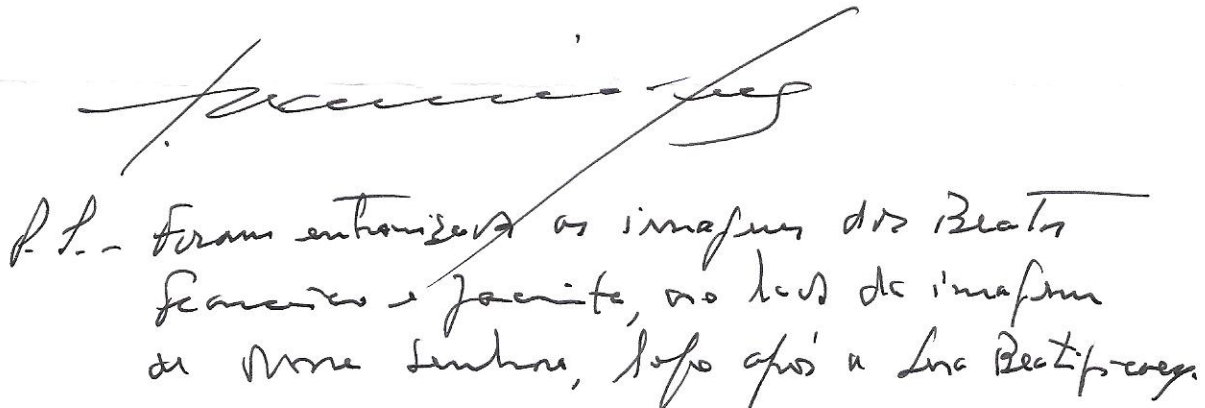 P.S. - Foram entronizadas as imagens dos Beatos
Francisco e Jacinta, ao lado da imagem
de Nossa Senhora, logo após a sua Beatificação.